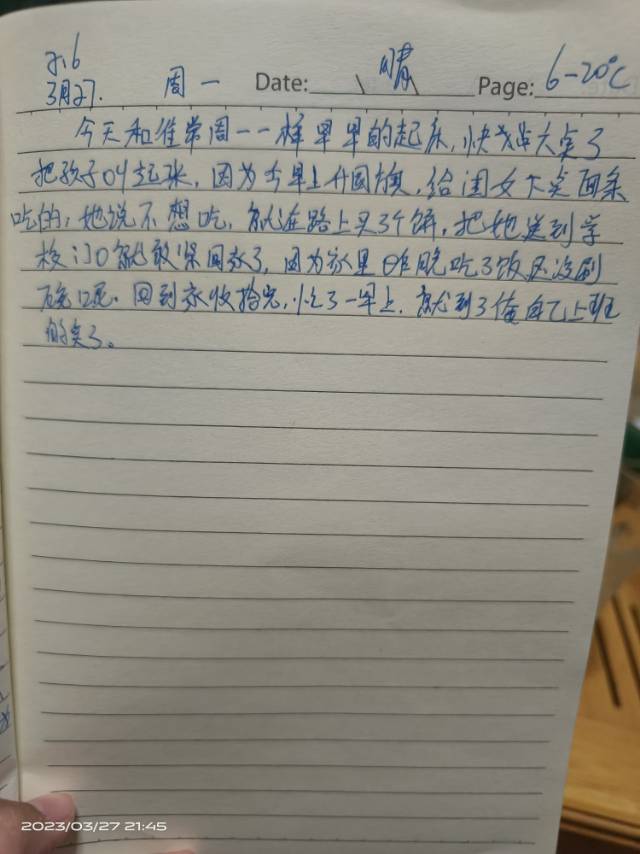 2.6
3月27. 周一 Date: 晴 Page: 6-20℃
今天和往常周一一样早早的起床,快7点大笑了
把孩子叫起来,因为今早上升国旗,给闺女下点面条
吃的;她说不想吃,就在路上买了个饼,把她送到学
校门口就敢紧回家了,因为家里昨晚吃了饭还没刷
碗呢.回到家收拾完,忙了一早上.就到了值自己上班
的点了。
2023/03/27 21:45